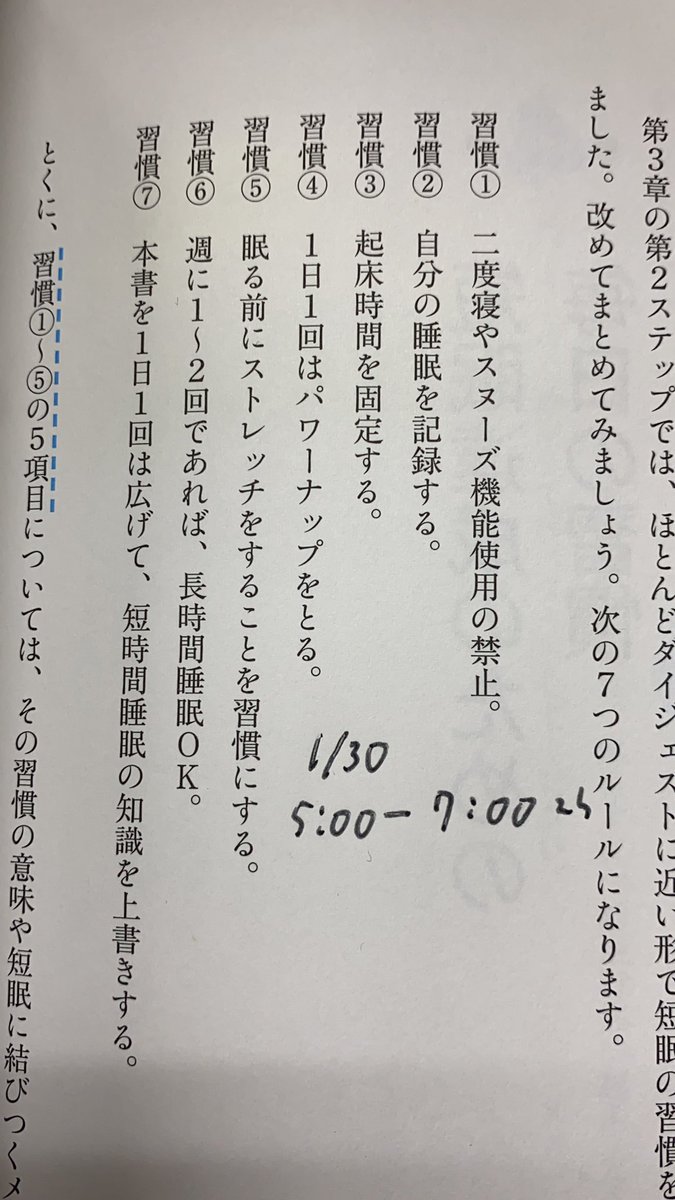 第3章の第2ステップでは、ほとんどダイジェストに近い形で短眠の習慣を
ました。改めてまとめてみましょう。次の7つのルールになります。
習慣① 二度寝やスヌーズ機能使用の禁止。
習慣② 自分の睡眠を記録する。
習慣③ 起床時間を固定する。
習慣④ 1日1回はパワーナップをとる。
習慣⑤ 眠る前にストレッチをすることを習慣にする。
習慣⑥ 週に1〜2回であれば、長時間睡眠OK。
習慣⑦ 本書を1日1回は広げて、短時間睡眠の知識を上書きする。
とくに、習慣①〜⑤の5項目については、その習慣の意味や短眠に結びつくメ
1/30
5:00 - 7:00 2h